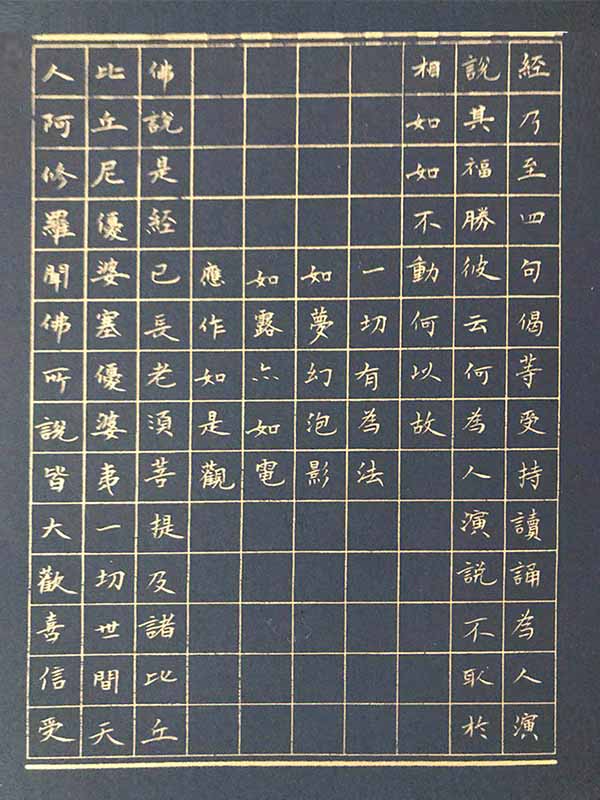 經乃至四句偈等受持讀誦為人演
說其福勝彼云何為人演說不取於
相如如不動何以故
一切有為法
如夢幻泡影
如露亦如電
應作如是觀
佛說是經已長老須菩提及諸比丘
比丘尼優婆塞優婆夷一切世間天
人阿修羅聞佛所說皆大歡喜信受